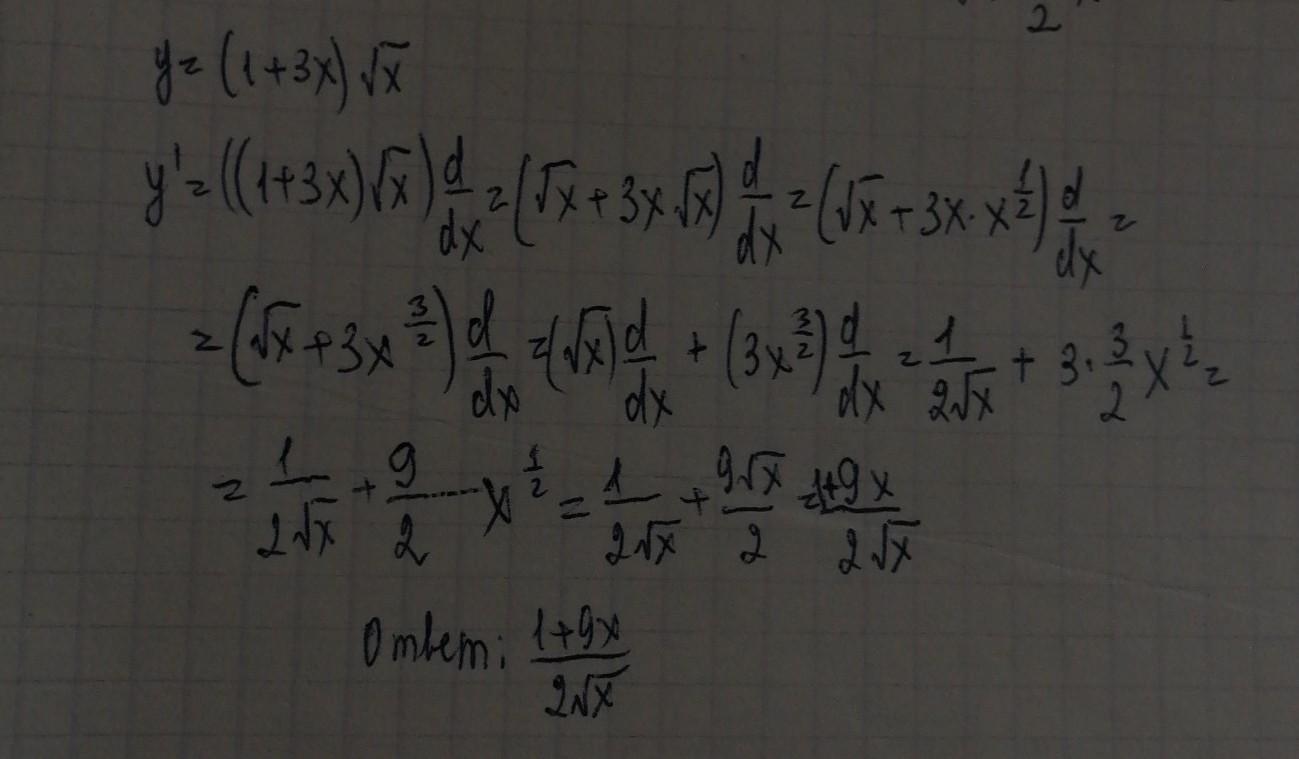 2
y = (1+3x)√x
y' = ((1+3x)√x) d/dx = (√x + 3x·√x) d/dx = (√x + 3x·x^(1/2)) d/dx =
= (√x + 3x^(3/2)) d/dx = (√x) d/dx + (3x^(3/2)) d/dx = 1/(2√x) + 3·3/2 x^(1/2) =
= 1/(2√x) + 9/2 x^(1/2) = 1/(2√x) + 9√x/2 = (1+9x)/(2√x)
Ответ: (1+9x)/(2√x)